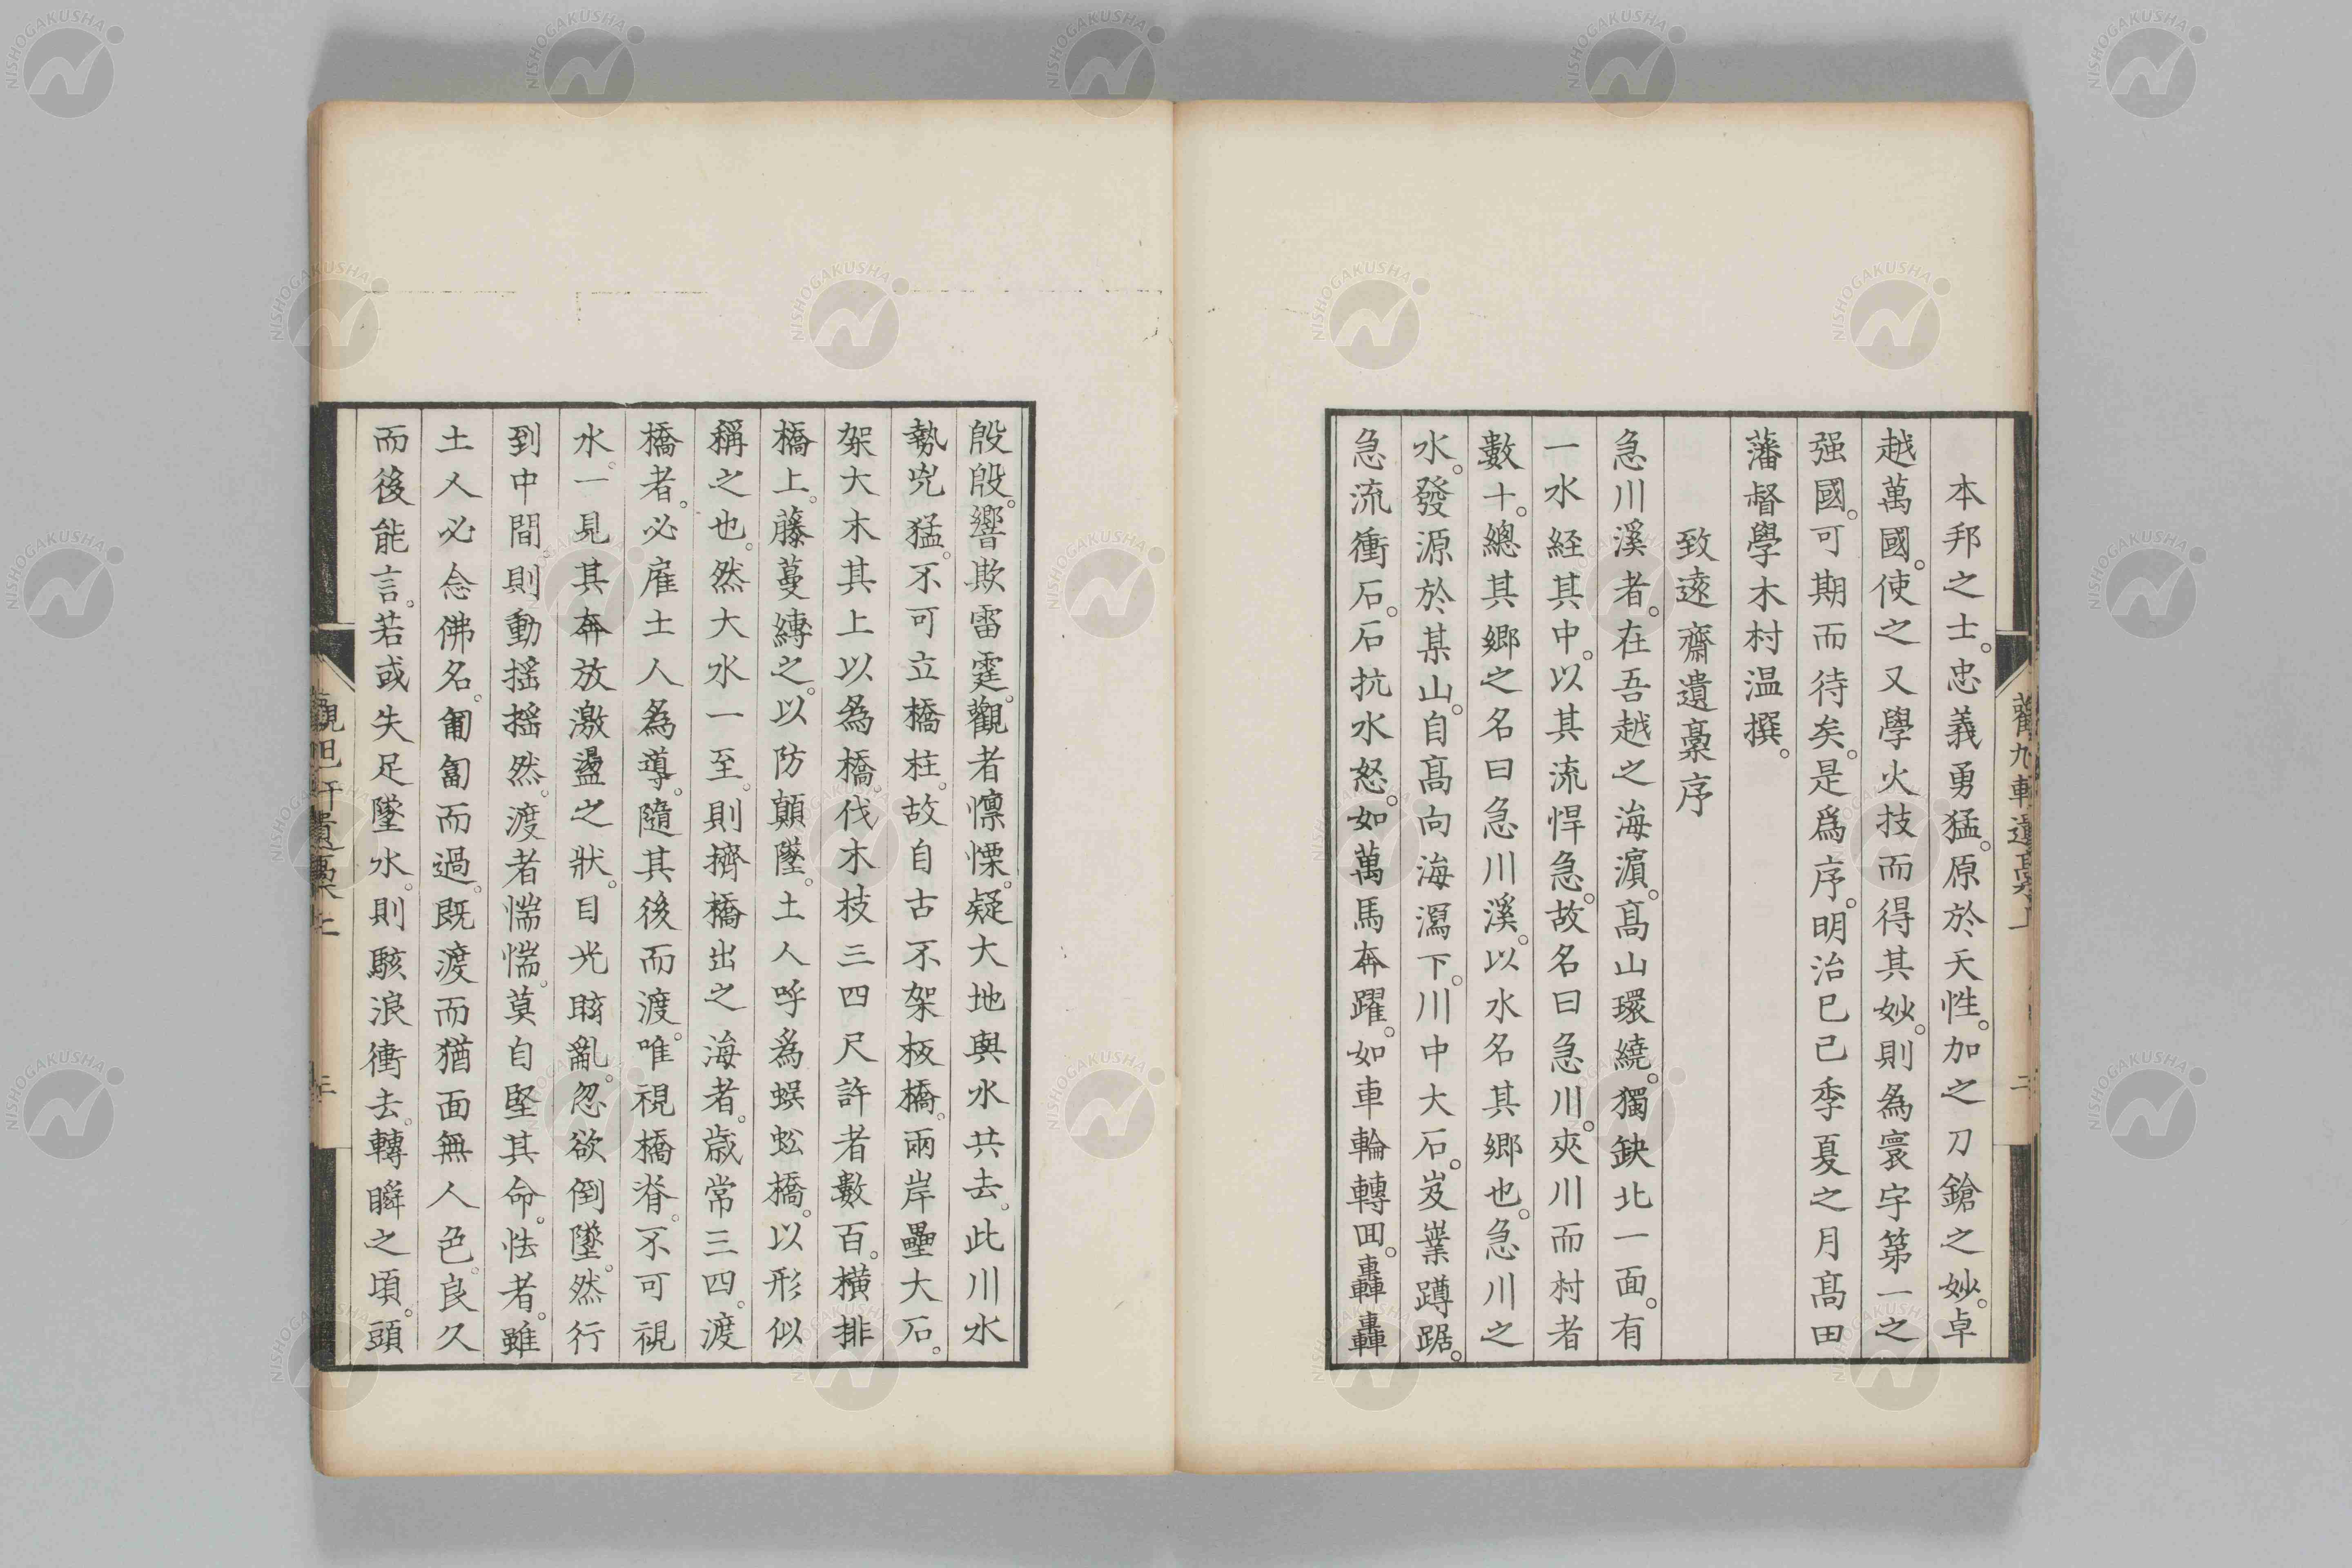 本邦之士。忠義勇猛。原於天性。加之刀鎗之妙。卓
越萬國。使之又學火技而得其妙。則為寰宇第一之
强國。可期而待矣。是爲序。明治己巳季夏之月髙田
藩督學木村温撰。
致遠齋遺稾序
急川溪者。在吾越之海濵。髙山環繞。獨缺北一面。有
一水経其中。以其流悍急。故名曰急川。夾川而村者
數十。總其郷之名曰急川溪。以水名其郷也。急川之
水。發源於某山。自髙向海瀉下。川中大石。岌嶪蹲踞。
急流衝石。石抗水怒。如萬馬奔躍。如車輪轉囬。轟轟
殷殷。響欺雷霆。觀者懍慄。疑大地與水共去。此川水
勢兇猛。不可立橋柱。故自古不架板橋。兩岸壘大石。
架大木其上以為橋。伐木枝三四尺許者數百。横排
橋上。藤蔓縳之。以防顛墜。土人呼為蜈蚣橋。以形似
稱之也。然大水一至。則擠橋出之海者。歳常三四。渡
橋者。必雇土人為導。隨其後而渡。唯視橋脊。不可視
水。一見其奔放激盪之狀。目光眩亂。忽欲倒墜。然行
到中間則動揺揺然。渡者惴惴。莫自堅其命。怯者。雖
土人必念佛名。匍匐而過。既渡而猶面無人色。良久
而後能言。若或失足墜水。則駭浪衝去。轉瞬之頃。頭